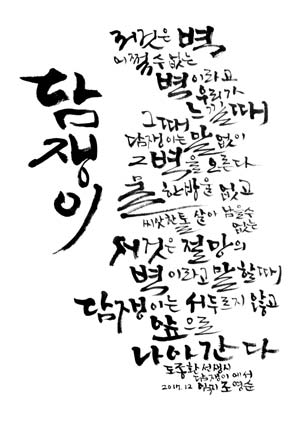 담쟁이
저것은 벽
어쩔 수 없는
벽이라고
우리가
느낄 때
그때
담쟁이는 말 없이
그 벽을 오른다
물 한방울 없고
씨앗 한톨 살아 남을 수
없는
저것은 절망의
벽이라고 말할 때
담쟁이는 서두르지 않고
앞으로
나아간다
도종환 선생 시
담쟁이 에서
2017.12 조영순